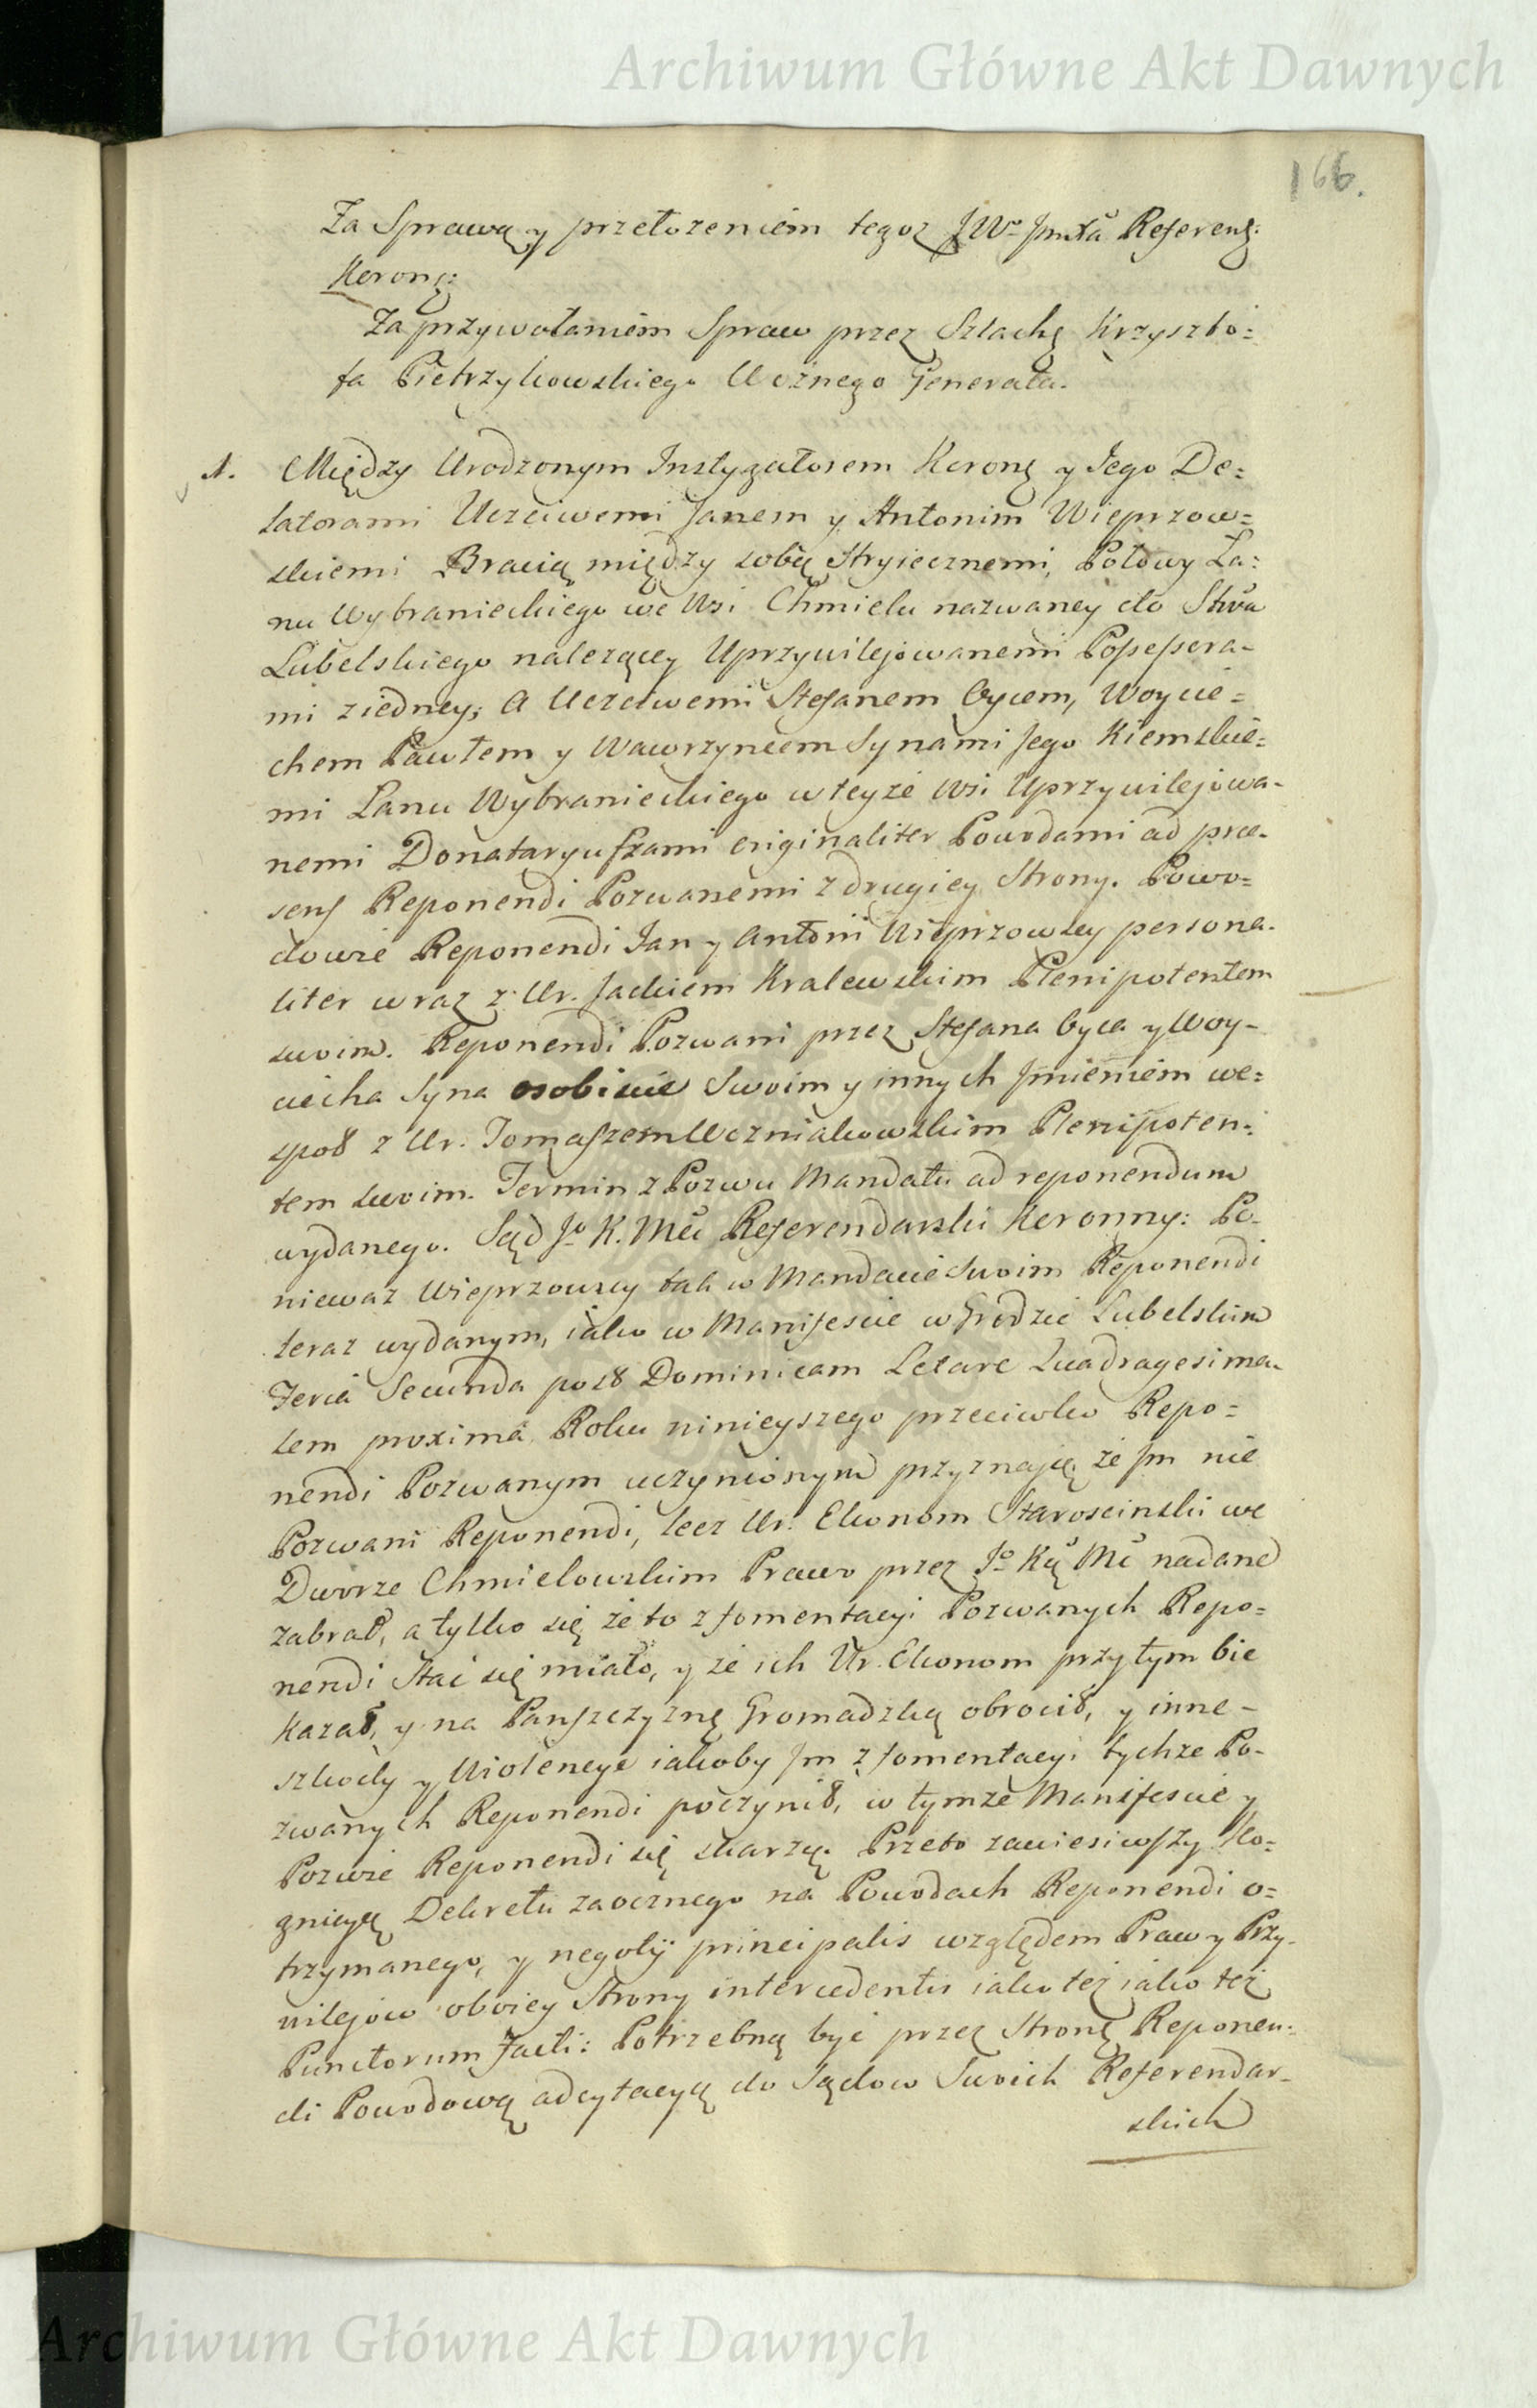 Archiwum Główne Akt Dawnych
166.
Za Sprawą y przełozeniem tegoz JWo Jmxa Referend:
Koronn:
Za przywołaniem Spraw przez Szlachę Krzyszto=
fa Pietrzykowskiego Woznego Generała.
1. Między Urodzonym Instygatorem Koronn y Jego De=
latorami Uczciwemi Janem y Antonim Wieprzow=
skiemi Bracią między sobą Stryiecznemi, Połowy Ła=
nu Wybranieckiego we Wsi Chmielu nazwaney do Stwa
Lubelskiego nalezącey Uprzywilejowanemi Possessora-
mi ziedney; A Uczciwemi Stefanem Oycem, Woycie=
chem Pawłem y Wawrzyncem Synami Jego Kiemskie=
mi Łanu Wybranieckiego w teyże Wsi Uprzywilejowa-
nemi Donataryuszami originaliter Powodami ad prae-
sens Reponendi Pozwanemi z drugiey Strony. Powo=
dowie Reponendi Jan y Antoni Wieprzowscy persona-
liter wraz z Ur. Jackiem Kralewskim Plenipotentem
swoim. Reponendi Pozwani przez Stefana Oyca y Woy-
ciecha Syna osobiscie Swoim y innych Jmieniem we=
społ z Ur. Tomaszem Uczniakowskim Plenipoten=
tem swoim. Termin z Pozwu Mandatu ad reponendum
wydanego. Sąd Jo K. Mci Referendarski Koronny: Po-
niewaz Wieprzowscy tak w Mandacie Swoim Reponendi
teraz wydanym, iako w Manifescie w Grodzie Lubelskim
Feria Secunda post Dominicam Letare Quadragesima-
lem proxima Roku ninieyszego przeciwko Repo=
nendi Pozwanym uczynionym przyznaję że Jm nie
Pozwani Reponendi, lecz Ur. Ekonom Staroscinski we
Dworze Chmielowskim Prawo przez Jo Ką Mć nadane
zabrał, a tylko się że to z fomentacyi Pozwanych Repo=
nendi Stać się miało, y że ich Ur. Ekonom przytym bic
kazał, y na Panszczyznę Gromadzką obrocił, y inne-
szkody y Violencye iakoby Jm z fomentacyi tychze Po-
zwanych Reponendi poczynił, w tymze Manifescie y
Pozwie Reponendi się skarzą. Przeto zawiesiwszy Ko=
gnicyą Dekretu zaocznego na Powodach Reponendi o=
trzymanego, y negotij principalis względem Praw y Przy-
wilejow oboiey Strony intercedentis iako tez iako tez
Punctorum Facti: Potrzebną byc przez Stronę Reponen=
di Powodową adcytacyą do Sądow Swoich Referendar-
skich
Archiwum Główne Akt Dawnych